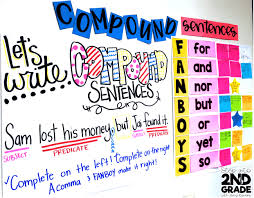 COMPOUND
Sentences
Let's
write
COMPOUND
SENTENCES!
Sam lost his money, but Ja found it.
SUBJECT PREDICATE
Complete on the left! Complete on the right
A comma & FANBOY make it right!
F for
A and
N nor
B but
O or
Y yet
S so
2ND
GRADE